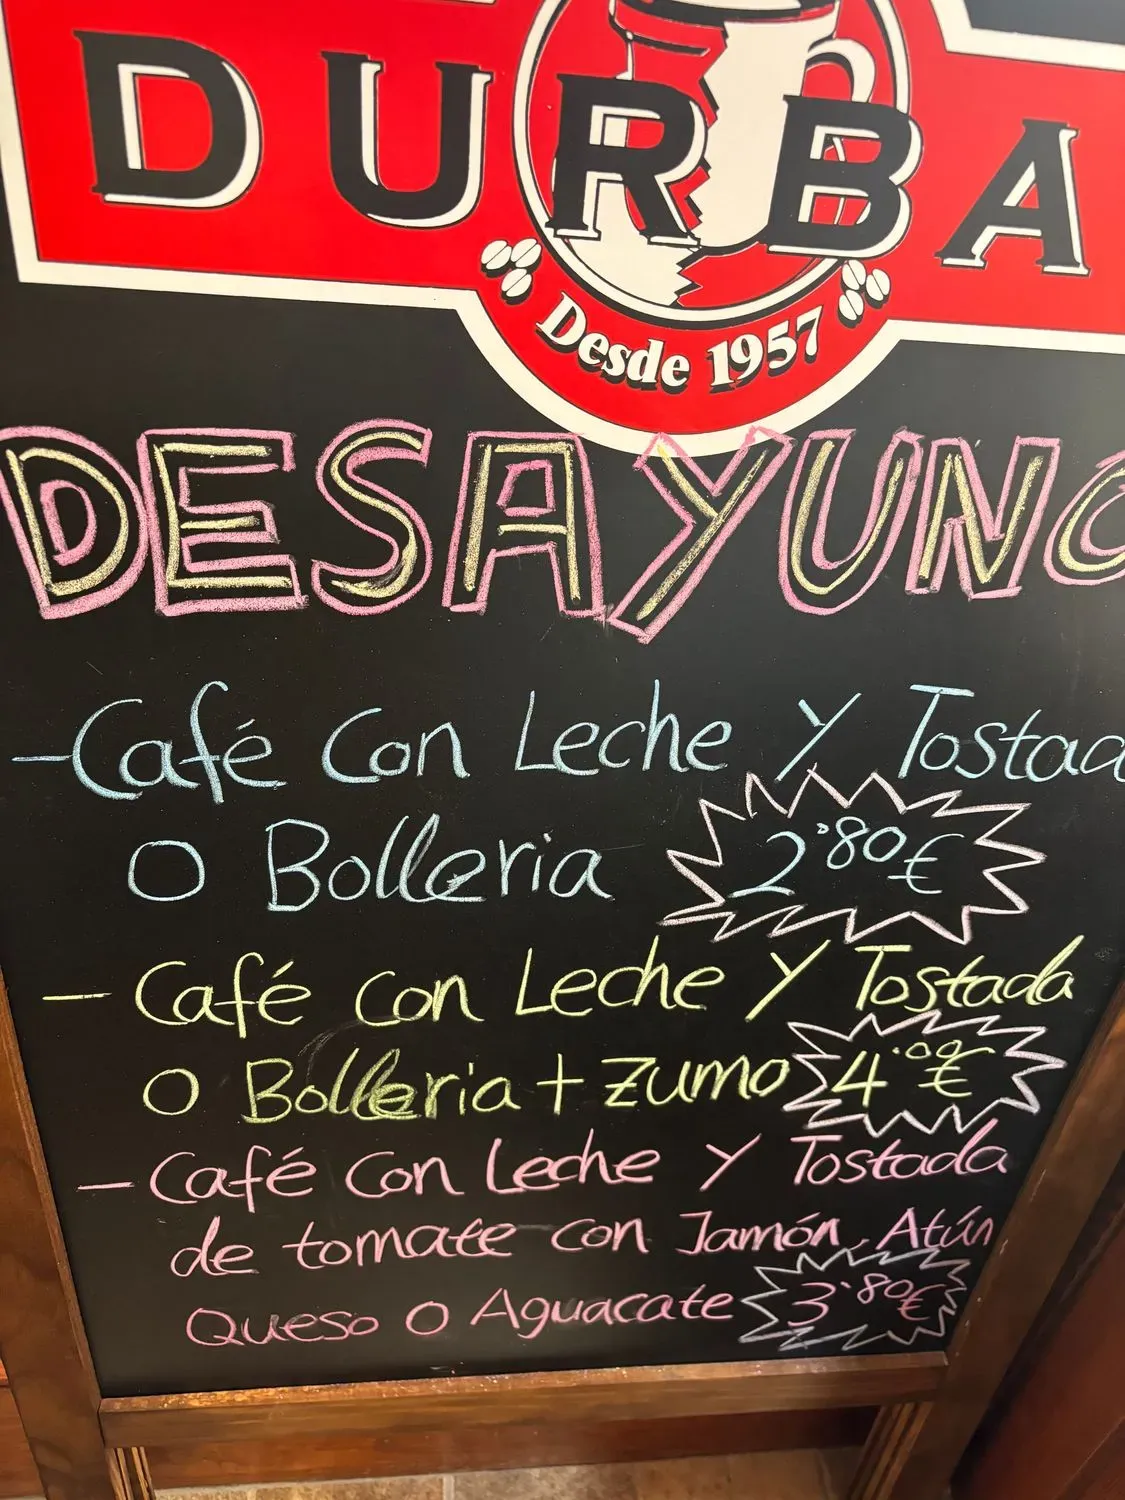 DURBA
Desde 1957
DESAYUNO
-Café Con Leche Y Tostad
O Bolleria 2'80€
- Café Con Leche Y Tostada
O Bolleria + Zumo 4'00€
- Café Con Leche Y Tostada
de tomate con Jamón, Atún
Queso O Aguacate 3'80€